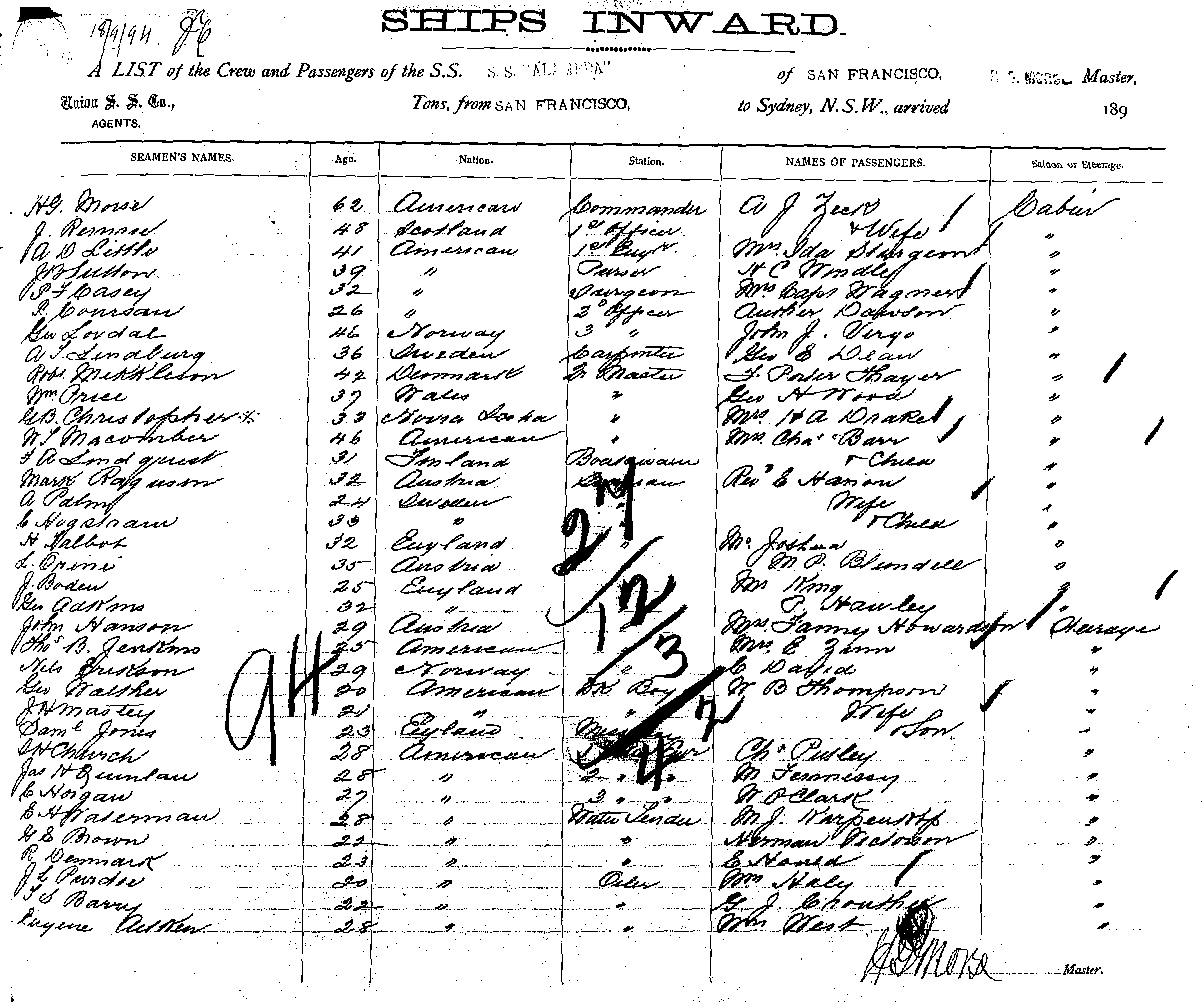 18/9/94
SHIPS INWARD.
A LIST of the Crew and Passengers of the S.S. S.S. "ALAMEDA" of SAN FRANCISCO, H. G. MORSE, Master,
Union S. S. Co., Tons, from SAN FRANCISCO, to Sydney, N.S.W., arrived 189
AGENTS.
SEAMEN'S NAMES. Age. Nation. Station. NAMES OF PASSENGERS. Saloon or Steerage.
HG. Morse 62 American Commander A J Zeck Cabin
J. Rennie 48 Scotland 1st Officer & Wife "
A D Little 41 American 1st Engr Mrs Ida Sturgeon "
Sutton 39 " Purser H C Windley "
P F Casey 32 " Surgeon Mrs Capt Wagner "
P. Coursau 26 " 2d Officer Dawson "
Geo Lovdal 46 Norway 3 " John J. Virgo "
A S Lindburg 36 Sweden Carpenter Geo E Dean "
Robt Mekkleson 42 Denmark Qr Master F. Porter Thayer "
Wm Price 37 Wales " Geo H Wood "
GB. Christopher 33 Nova Scotia " Mrs H A Drake "
W S Macomber 46 American " Mrs Chas Barr "
F A Lindquist 31 Finland Boatswain & Child "
Mark Raguson 32 Austria Revd E Hanson "
A Palm 24 Sweden Wife "
C Hogstram 33 " & Child "
H Talbot 32 England " Mr Joshua "
L. Opini 35 Austria M P. Blundell "
J. Boden 25 England Mr King "
Geo Adkins 32 " F. Hawley "
John Hanson 29 Austria Mrs Fanny Howardson Steerage
Thos B. Jenkins 25 American Mrs E Zinn "
Nils Erikson 29 Norway " C David "
Geo Walther 20 American Dk Boy W B Thompson "
J H Mastey 21 " " Wife "
Daml Jones 23 England & Son "
Church 28 American Chs Pusley "
Jas H Quinlan 28 " 2 " " M Fennessy "
C Horgan 27 " 3 " " W O Clark "
E H Waterman 28 " Water Tender M. J. Karpenkop "
G E Brown 22 " " Herman Pictorson "
P. Denmark 23 " " E Howed "
J L Purdie 20 " Oiler Wm Haly "
T S Barry 22 " " G J Crouther "
Eugene Aitken 28 " " Wm West "
94
27/12/3
42
HG Morse Master.